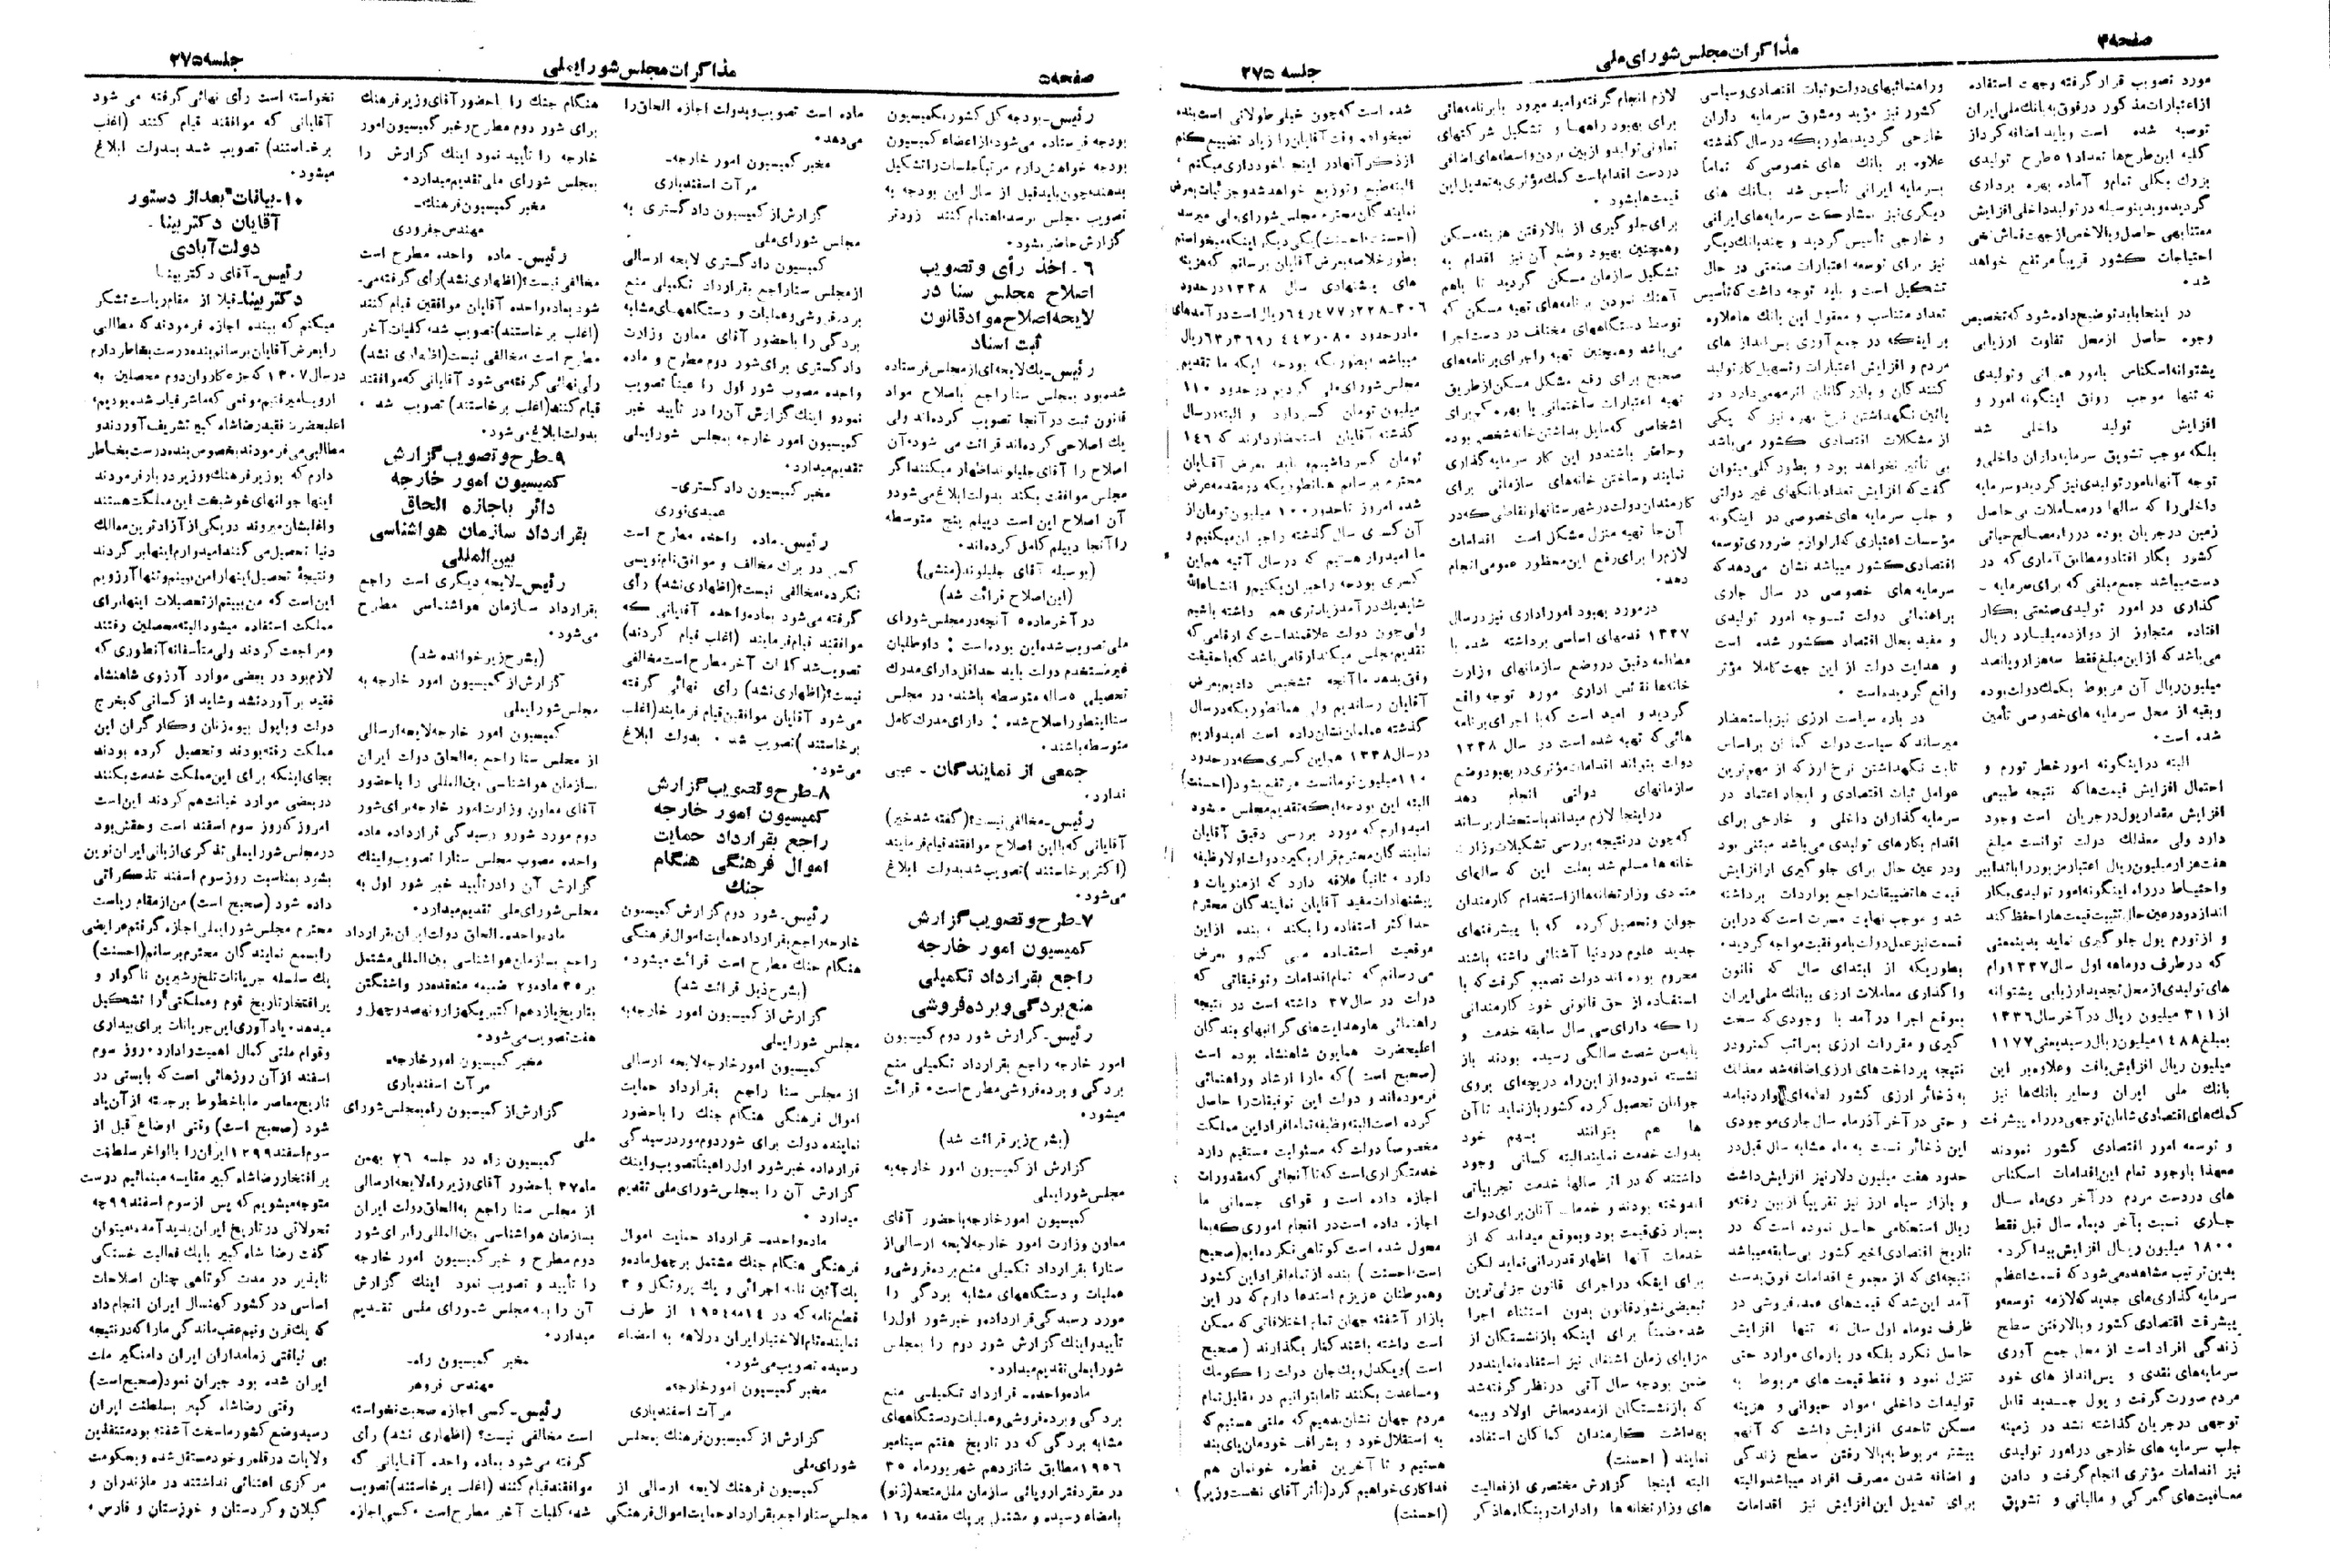 صفحه ۴
مذاکرات مجلس شورای ملی
جلسه ۲۷۵
مورد تصویب قرار گرفته و جهت استفاده
از اعتبارات مذکور در فوق به بانک ملی ایران
توصیه شده است و باید اضافه کرد از
کلیه این طرح‌ها تعداد ۵۱ طرح تولیدی
بزرگ بکلی تمام و آماده بهره برداری
گردیده و بدینوسیله در تولید داخلی افزایش
معتنابهی حاصل و بالاخص از جهت قماش نخی
احتیاجات کشور قریباً مرتفع خواهد
شد.
در اینجا باید توضیح داده شود که تخصیص
وجوه حاصل از محل تفاوت ارزیابی
پشتوانه اسکناس بامور عمرانی و تولیدی
نه تنها موجب رونق اینگونه امور و
افزایش تولید داخلی شد
بلکه موجب تشویق سرمایه داران داخلی و
توجه آنها بامور تولیدی نیز گردید و سرمایه
داخلی را که سالها در معاملات بی حاصل
زمین در جریان بوده در راه مصالح حیاتی
کشور بکار افتاد و مطابق آماری که در
دست میباشد جمع مبلغی که برای سرمایه -
گذاری در امور تولیدی صنعتی بکار
افتاده متجاوز از دوازده میلیارد ریال
می‌باشد که از این مبلغ فقط سه هزار و پانصد
میلیون ریال آن مربوط بکمک دولت بوده
و بقیه از محل سرمایه های خصوصی تأمین
شده است.
البته در اینگونه امور خطر تورم و
احتمال افزایش قیمت‌ها که نتیجه طبیعی
افزایش مقدار پول در جریان است وجود
دارد ولی معذلک دولت توانست مبلغ
هفت هزار میلیون ریال اعتبار مزبور را با تدابیر
و احتیاط در راه اینگونه امور تولیدی بکار
اندازد و در عین حال تثبیت قیمت‌ها را حفظ کند
و از تورم پول جلوگیری نماید بدینمعنی
که در ظرف دو ماهه اول سال ۱۳۳۷ وام
های تولیدی از محل تجدید ارزیابی پشتوانه
از ۳۱۱ میلیون ریال در آخر سال ۱۳۳۶
بمبلغ ۱۴۸۸ میلیون ریال رسید یعنی ۱۱۷۷
میلیون ریال افزایش یافت و علاوه بر این
بانک ملی ایران و سایر بانک‌ها نیز
کمک‌های اقتصادی شایان توجهی در راه پیشرفت
و توسعه امور اقتصادی کشور نمودند
معهذا با وجود تمام این اقدامات اسکناس
های در دست مردم در آخر دی ماه سال
جاری نسبت بآخر دیماه سال قبل فقط
۱۸۰۰ میلیون ریال افزایش پیدا کرد.
بدین ترتیب مشاهده می‌شود که قسمت اعظم
سرمایه گذاری های جدید که لازمه توسعه و
پیشرفت اقتصادی کشور و بالا رفتن سطح
زندگی افراد است از محل جمع آوری
سرمایه‌های نقدی و پس‌انداز های خود
مردم صورت گرفت و پول جدید قابل
توجهی در جریان گذاشته نشد در زمینه
جلب سرمایه های خارجی در امور تولیدی
نیز اقدامات مؤثری انجام گرفت و دادن
معافیت‌های گمرکی و مالیاتی و تشویق
و راهنمائیهای دولت و ثبات اقتصادی و سیاسی
کشور نیز مؤید و مشوق سرمایه داران
خارجی گردید بطوریکه در سال گذشته
علاوه بر بانک های خصوصی که تماماً
بسرمایه ایرانی تأسیس شد بانک های
دیگری نیز بمشارکت سرمایه‌های ایرانی
و خارجی تأسیس گردید و چند بانک دیگر
نیز برای توسعه اعتبارات صنعتی در حال
تشکیل است و باید توجه داشت که تأسیس
تعداد متناسب و معقول این بانک ها علاوه
بر اینکه در جمع آوری پس‌انداز های
مردم و افزایش اعتبارات و تسهیل کار تولید
کنندگان و بازرگانان اثر مهمی دارد در
پائین نگهداشتن نرخ بهره نیز که یکی
از مشکلات اقتصادی کشور می‌باشد
بی تأثیر نخواهد بود و بطور کلی میتوان
گفت که افزایش تعداد بانکهای غیر دولتی
و جلب سرمایه های خصوصی در اینگونه
مؤسسات اعتباری که از لوازم ضروری توسعه
اقتصادی کشور میباشد نشان می‌دهد که
سرمایه های خصوصی در سال جاری
براهنمائی دولت متوجه امور تولیدی
و مفید بحال اقتصاد کشور شده است
و هدایت دولت از این جهت کاملا مؤثر
واقع گردیده است.
در باره سیاست ارزی نیز باستحضار
میرساند که سیاست دولت کماکان بر اساس
ثابت نگهداشتن نرخ ارز که از مهم‌ترین
عوامل ثبات اقتصادی و ایجاد اعتماد در
سرمایه گذاران داخلی و خارجی برای
اقدام بکارهای تولیدی می‌باشد مبتنی بود
و در عین حال برای جلوگیری از افزایش
قیمت ها تضییقات راجع بواردات برداشته
شد و موجب نهایت مسرت است که در این
قسمت نیز عمل دولت با موفقیت مواجه گردید.
بطوریکه از ابتدای سال که قانون
واگذاری معاملات ارزی ببانک ملی ایران
بموقع اجرا در آمد با وجودی که سخت
گیری و مقررات ارزی بمراتب کمتر و در
نتیجه پرداخت‌های ارزی اضافه شد معذلک
به ذخائر ارزی کشور لطمه‌ای وارد نیامد
و حتی در آخر آذر ماه سال جاری موجودی
این ذخائر نسبت به ماه مشابه سال قبل در
حدود هفت میلیون دلار نیز افزایش داشت
و بازار سیاه ارز نیز تقریباً از بین رفته و
ریال استحکامی حاصل نموده است که در
تاریخ اقتصادی اخیر کشور بی سابقه میباشد
نتیجه‌ای که از مجموع اقدامات فوق بدست
آمد این شد که قیمت‌های عمده فروشی در
ظرف دو ماه اول سال نه تنها افزایش
حاصل نکرد بلکه در پاره‌ای موارد حتی
تنزل نمود و فقط قیمت های مربوط به
تولیدات داخلی مواد حیوانی و هزینه
مسکن تاحدی افزایش داشت که آنهم
بیشتر مربوط به بالا رفتن سطح زندگی
و اضافه شدن مصرف افراد میباشد و البته
برای تعدیل این افزایش نیز اقدامات
لازم انجام گرفته و امید میرود با برنامه‌هائی
برای بهبود راهها و تشکیل شرکتهای
تعاونی تولید و از بین بردن واسطه‌های اضافی
در دست اقدام است کمک مؤثری به تعدیل این
قیمت‌ها بشود.
برای جلوگیری از بالا رفتن هزینه مسکن
و همچنین بهبود وضع آن نیز اقدام به
تشکیل سازمان مسکن گردید تا باهم
آهنگ نمودن برنامه‌های تهیه مسکن که
توسط دستگاههای مختلف در دست اجرا
می‌باشد و همچنین تهیه و اجرای برنامه‌های
صحیح برای رفع مشکل مسکن از طریق
تهیه اعتبارات ساختمانی با بهره کم برای
اشخاصی که مایل بداشتن خانه شخصی بوده
و حاضر باشند در این کار سرمایه گذاری
نمایند و ساختن خانه‌های سازمانی برای
کارمندان دولت در شهرستانها و نقاطی که در
آن‌جا تهیه منزل مشکل است اقدامات
لازم را برای رفع این محظور عمومی انجام
دهد.
در مورد بهبود امور اداری نیز در سال
۱۳۳۷ قدمهای اساسی برداشته شد با
مطالعه دقیق در وضع سازمانهای وزارت
خانه‌ها نقائص اداری مورد توجه واقع
گردید و امید است که با اجرای برنامه
هائی که تهیه شده است در سال ۱۳۳۸
دولت بتواند اقدامات مؤثری در بهبود وضع
سازمانهای دولتی انجام دهد
در اینجا لازم میداند باستحضار برساند
که چون در نتیجه بررسی تشکیلات وزارت
خانه ها مسلم شد بعلت این که سالهای
متمادی وزارتخانه‌ها از استخدام کارمندان
جوان و تحصیل کرده که با پیشرفتهای
جدید علوم در دنیا آشنائی داشته باشند
محروم بوده‌اند دولت تصمیم گرفت که با
استفاده از حق قانونی خود کارمندانی
را که دارای سی سال سابقه خدمت و
یا به سن شصت سالگی رسیده بودند باز
نشسته نموده و از این راه دریچه‌ای بروی
جوانان تحصیل کرده کشور باز نماید تا آن
ها هم بتوانند بسهم خود
بدولت خدمت نمایند البته کسانی وجود
داشتند که در اثر سالها خدمت تجربیاتی
اندوخته بودند و خدمات آنان برای دولت
بسیار ذیقیمت بود و بموقع میداند که از
خدمات آنها اظهار قدردانی نماید لکن
برای اینکه در اجرای قانون جزئی‌ترین
تبعیضی نشود قانون بدون استثناء اجرا
شد ضمناً برای اینکه بازنشستگان از
مزایای زمان اشتغال نیز استفاده نمایند در
ضمن بودجه سال آتی در نظر گرفته شد
که بازنشستگان از مدد معاش اولاد و بیمه
بهداشت کارمندان کماکان استفاده
نمایند (احسنت)
البته اینجا گزارش مختصری از فعالیت
های وزارتخانه ها و ادارات و بنگاه‌ها ذکر
شده است که چون خیلی طولانی است بنده
نمیخواهم وقت آقایان را زیاد تضییع کنم
از ذکر آنها در اینجا خودداری میکنم،
البته طبع و توزیع خواهد شد و جزئیات بعرض
نمایندگان محترم مجلس شورای ملی میرسد
(احسنت، احسنت) یکی دیگر اینکه میخواستم
بطور خلاصه بعرض آقایان برسانم که هزینه
های پیشنهادی سال ۱۳۳۸ در حدود
ریال است در آمدهای
ما در حدود ریال
میباشد بطوریکه بودجه اینکه ما تقدیم
مجلس شورای ملی کردیم در حدود ۱۱۰
میلیون تومان کسر دارد و البته در سال
گذشته آقایان استحضار دارند که ۱۴۶
تومان کسر داشتیم و باید بعرض آقایان
محترم برسانم همانطوریکه در مقدمه عرض
شده امروز تا حدود ۱۰۰ میلیون تومان از
آن کسری سال گذشته را جبران میکنیم و
ما امیدوار هستیم که در سال آتیه هم این
کسری بودجه را جبران بکنیم و انشاءالله
شاید یک در آمد زیادتری هم داشته باشیم
ولی چون دولت علاقمند است که ارقامی که
تقدیم مجلس میکند ارقامی باشد که با حقیقت
وفق بدهد ما آنچه تشخیص دادیم بعرض
آقایان رساندیم ولی همانطوریکه در سال
گذشته عملمان نشان داده است امیدواریم
در سال ۱۳۳۸ هم این کسری که در حدود
۱۱۰ میلیون تومانست مرتفع بشود (احسنت)
البته این بودجه اینکه تقدیم مجلس میشود
امیدوارم که مورد بررسی دقیق آقایان
نمایندگان محترم قرار بگیرد دولت اولا وظیفه
دارد، ثانیاً علاقه دارد که از منویات و
پیشنهادات مفید آقایان نمایندگان محترم
حداکثر استفاده را بکند، بنده از این
موقعیت استفاده می کنم و بعرض
می‌رسانم که تمام اقدامات و توفیقاتی که
دولت در سال ۳۷ داشته است در نتیجه
راهنمائی ها و هدایت‌های گرانبهای بندگان
اعلیحضرت همایون شاهنشاه بوده است
(صحیح است) که ما را ارشاد و راهنمائی
فرموده‌اند و دولت این توفیقات را حاصل
کرده است البته وظیفه تمام افراد این مملکت
مخصوصاً دولت که مسئولیت مستقیم دارد
خدمتگزاری است که تا آنجائی که مقدورات
اجازه داده است و قوای جسمانی ما
اجازه داده است در انجام اموری که بما
محول شده است کوتاهی نکرده‌ایم (صحیح
است، احسنت) بنده از تمام افراد این کشور
و هموطنان عزیزم استدعا دارم که در این
بازار آشفته جهان تمام اختلافاتی که ممکن
است داشته باشند کنار بگذارند (صحیح
است) و یکدل و یک جان دولت را کومک
و مساعدت بکنند تا ما بتوانیم در مقابل تمام
مردم جهان نشان بدهیم که ملتی هستیم که
به استقلال خود و بشرافت خودمان پای بند
هستیم و تا آخرین قطره خونمان هم
فداکاری خواهیم کرد (تأثر آقای نخست وزیر)
(احسنت)
صفحه ۵
مذاکرات مجلس شورایملی
جلسه ۲۷۵
رئیس- بودجه کل کشور بکمیسیون
بودجه فرستاده می‌شود، از اعضاء کمیسیون
بودجه خواهش دارم مرتباً جلسات را تشکیل
بدهند، چون باید قبل از سال این بودجه به
تصویب مجلس برسد، اهتمام کنند زودتر
گزارش حاضر بشود.
۶ـ اخذ رأی و تصویب
اصلاح مجلس سنا در
لایحه اصلاح مواد قانون
ثبت اسناد
رئیس- یک لایحه‌ای از مجلس فرستاده
شده بود بمجلس سنا راجع باصلاح مواد
قانون ثبت در آنجا تصویب کرده‌اند ولی
یک اصلاحی کرده‌اند قرائت می شود، آن
اصلاح را آقای جلیلوند اظهار میکنند اگر
مجلس موافقت بکند بدولت ابلاغ می‌شود و
آن اصلاح این است دیپلم پنج متوسطه
را آنجا دیپلم کامل کرده‌اند.
(بوسیله آقای جلیلوند (منشی)
(این اصلاح قرائت شد)
در آخر ماده ۵ آنچه در مجلس شورای
ملی تصویب شده این بوده است: داوطلبان
غیر مستخدم دولت باید حداقل دارای مدرک
تحصیلی ۵ ساله متوسطه باشند، در مجلس
سنا اینطور اصلاح شده: دارای مدرک کامل
متوسطه باشند.
جمعی از نمایندگان - عیبی
ندارد.
رئیس- مخالفی نیست؟ (گفته شد خیر)
آقایانی که با این اصلاح موافقند قیام فرمایند
(اکثر برخاستند) تصویب شد بدولت ابلاغ
می‌شود.
۷- طرح و تصویب گزارش
کمیسیون امور خارجه
راجع بقرارداد تکمیلی
منع بردگی و برده فروشی
رئیس- گزارش شور دوم کمیسیون
امور خارجه راجع بقرارداد تکمیلی منع
بردگی و برده فروشی مطرح است. قرائت
میشود.
(بشرح زیر قرائت شد)
گزارش از کمیسیون امور خارجه به
مجلس شورایملی
کمیسیون امور خارجه با حضور آقای
معاون وزارت امور خارجه لایحه ارسالی از
سنا را بقرارداد تکمیلی منع برده فروشی و
عملیات و دستگاههای مشابه بردگی را
مورد رسیدگی قرار داده و خبر شور اول را
تأیید و اینک گزارش شور دوم را بمجلس
شورایملی تقدیم میدارد.
ماده واحده- قرارداد تکمیلی منع
بردگی و برده فروشی و عملیات و دستگاههای
مشابه بردگی که در تاریخ هفتم سپتامبر
۱۹۵۶ مطابق شانزدهم شهریور ماه ۳۵
در مقر دفتر اروپائی سازمان ملل متحد (ژنو)
بامضاء رسیده و مشتمل بر یک مقدمه و ۱۶
ماده است تصویب و بدولت اجازه الحاق را
می‌دهد.
مخبر کمیسیون امور خارجه-
مرآت اسفندیاری
گزارش از کمیسیون دادگستری به
مجلس شورای ملی
کمیسیون دادگستری لایحه ارسالی
از مجلس سنا راجع بقرارداد تکمیلی منع
برده فروشی و عملیات و دستگاههای مشابه
بردگی را با حضور آقای معاون وزارت
دادگستری برای شور دوم مطرح و ماده
واحده مصوب شور اول را عیناً تصویب
نمود و اینک گزارش آن را در تأیید خبر
کمیسیون امور خارجه بمجلس شورایملی
تقدیم میدارد.
مخبر کمیسیون دادگستری-
عمیدی نوری
رئیس- ماده واحده مطرح است
کسی در برگ مخالف و موافق نام‌نویسی
نکرده، مخالفی نیست؟ (اظهاری نشد) رأی
گرفته می‌شود بماده واحده آقایانی که
موافقند قیام فرمایند (اغلب قیام کردند)
تصویب شد، کلیات آخر مطرح است مخالفی
نیست؟ (اظهاری نشد) رأی نهائی گرفته
می‌شود آقایان موافقین قیام فرمایند (اغلب
برخاستند) تصویب شد. بدولت ابلاغ
می‌شود.
۸- طرح و تصویب گزارش
کمیسیون امور خارجه
راجع بقرارداد حمایت
اموال فرهنگی هنگام
جنگ
رئیس- شور دوم گزارش کمیسیون
خارجه راجع بقرارداد حمایت اموال فرهنگی
هنگام جنگ مطرح است قرائت میشود.
(بشرح ذیل قرائت شد)
گزارش از کمیسیون امور خارجه به
مجلس شورایملی
کمیسیون امور خارجه لایحه ارسالی
از مجلس سنا راجع بقرارداد حمایت
اموال فرهنگی هنگام جنگ را با حضور
نماینده دولت برای شور دوم مورد رسیدگی
قرار داده خبر شور اول را عیناً تصویب و اینک
گزارش آن را بمجلس شورای ملی تقدیم
میدارد.
ماده واحده- قرارداد حمایت اموال
فرهنگی هنگام جنگ مشتمل بر چهل ماده و
یک آئین نامه اجرائی و یک پروتکل و ۳
قطع‌نامه که در ۱۴ مه ۱۹۵۴ از طرف
نماینده تام‌الاختیار ایران در لاهه به امضاء
رسیده تصویب می‌شود.
مخبر کمیسیون امور خارجه-
مرآت اسفندیاری
گزارش از کمیسیون فرهنگ بمجلس
شورای ملی
کمیسیون فرهنگ لایحه ارسالی از
مجلس سنا راجع بقرارداد حمایت اموال فرهنگی
هنگام جنگ را با حضور آقای وزیر فرهنگ
برای شور دوم مطرح و خبر کمیسیون امور
خارجه را تأیید نمود اینک گزارش را
بمجلس شورای ملی تقدیم میدارد.
مخبر کمیسیون فرهنگ-
مهندس جفرودی
رئیس- ماده واحده مطرح است
مخالفی نیست؟ (اظهاری نشد) رأی گرفته می-
شود بماده واحده آقایان موافقین قیام کنند
(اغلب برخاستند) تصویب شد، کلیات آخر
مطرح است، مخالفی نیست (اظهاری نشد)
رأی نهائی گرفته می‌شود آقایانی که موافقند
قیام کنند (اغلب برخاستند) تصویب شد.
بدولت ابلاغ می‌شود.
۹- طرح و تصویب گزارش
کمیسیون امور خارجه
دائر باجازه الحاق
بقرارداد سازمان هواشناسی
بین‌المللی
رئیس- لایحه دیگری است راجع
بقرارداد سازمان هواشناسی مطرح
می‌شود.
(بشرح زیر خوانده شد)
گزارش از کمیسیون امور خارجه به
مجلس شورایملی
کمیسیون امور خارجه لایحه ارسالی
از مجلس سنا راجع به الحاق دولت ایران
بسازمان هواشناسی بین‌المللی را با حضور
آقای معاون وزارت امور خارجه برای شور
دوم مورد شور و رسیدگی قرار داده ماده
واحده مصوب مجلس سنا را تصویب و اینک
گزارش آن را در تأیید خبر شور اول به
مجلس شورای ملی تقدیم میدارد.
ماده واحده- الحاق دولت ایران بقرارداد
راجع بسازمان هواشناسی بین‌المللی مشتمل
بر ۳۵ ماده و ۲ ضمیمه منعقده در واشنگتن
بتاریخ یازدهم اکتبر یکهزار و نهصد و چهل و
هفت تصویب می‌شود.
مخبر کمیسیون امور خارجه-
مرآت اسفندیاری
گزارش از کمیسیون راه بمجلس شورای
ملی
کمیسیون راه در جلسه ۲۶ بهمن
ماه ۳۷ با حضور آقای وزیر راه لایحه ارسالی
از مجلس سنا راجع به الحاق دولت ایران
بسازمان هواشناسی بین‌المللی را برای شور
دوم مطرح و خبر کمیسیون امور خارجه
را تأیید و تصویب نمود اینک گزارش
آن را به مجلس شورای ملی تقدیم
میدارد.
مخبر کمیسیون راه-
مهندس فروهر
رئیس- کسی اجازه صحبت نخواسته
است مخالفی نیست؟ (اظهاری نشد) رأی
گرفته می‌شود بماده واحده آقایانی که
موافقند قیام کنند (اغلب برخاستند) تصویب
شد، کلیات آخر مطرح است، کسی اجازه
نخواسته است رأی نهائی گرفته می شود
آقایانی که موافقند قیام کنند (اغلب
برخاستند) تصویب شد بدولت ابلاغ
میشود.
۱۰- بیانات بعد از دستور
آقایان دکتر بینا -
دولت آبادی
رئیس- آقای دکتر بینا
دکتر بینا- قبلا از مقام ریاست تشکر
میکنم که ببنده اجازه فرمودند که مطالبی
را بعرض آقایان برسانم بنده درست بخاطر دارم
در سال ۱۳۰۷ که جزء کاروان دوم محصلین به
اروپا میرفتیم موقعی که ما شرفیاب شده بودیم،
اعلیحضرت فقید رضاشاه کبیر تشریف آوردند و
مطالبی می‌فرمودند بخصوص بنده درست بخاطر
دارم که بوزیر فرهنگ و وزیر دربار فرمودند
اینها جوانهای خوشبخت این مملکت هستند
واغلبشان میروند در یکی از آزادترین ممالک
دنیا تحصیل می کنند امیدوارم اینها برگردند
و نتیجهٔ تحصیل اینها را من ببینم و تنها آرزویم
این است که من ببینم از تحصیلات اینها برای
مملکت استفاده میشود البته محصلین رفتند
و مراجعت کردند ولی متأسفانه آنطوری که
لازم بود در بعضی موارد آرزوی شاهنشاه
فقید برآورد نشد و شاید از کسانی که بخرج
دولت و با پول بیوه زنان و کارگران این
مملکت رفته بودند و تحصیل کرده بودند
بجای اینکه برای این مملکت خدمت بکنند
در بعضی موارد خیانت هم کردند این است
امروز که روز سوم اسفند است و حقش بود
در مجلس شورایملی تذکری از بانی ایران نوین
بشود بمناسبت روز سوم اسفند تذکراتی
داده شود (صحیح است) من از مقام ریاست
محترم مجلس شورایملی اجازه گرفتم عرایضی
را بسمع نمایندگان محترم برسانم (احسنت)
یک سلسله جریانات تلخ و شیرین ناگوار و
پر افتخار تاریخ قوم و مملکتی را تشکیل
میدهد. یادآوری این جریانات برای بیداری
و قوام ملتی کمال اهمیت را دارد. روز سوم
اسفند از آن روزهائی است که بایستی در
تاریخ معاصر ما با خطوط برجسته از آن یاد
شود (صحیح است) وقتی اوضاع قبل از
سوم اسفند ۱۲۹۹ ایران را با اواخر سلطنت
پر افتخار رضاشاه کبیر مقایسه مینمائیم درست
متوجه میشویم که پس از سوم اسفند ۹۹ چه
تحولاتی در تاریخ ایران پدید آمده، میتوان
گفت رضا شاه کبیر با یک فعالیت خستگی
ناپذیر در مدت کوتاهی چنان اصلاحات
اساسی در کشور کهنسال ایران انجام داد
که یک قرن و نیم عقب ماندگی ما را که در نتیجه
بی لیاقتی زمامداران ایران دامنگیر ملت
ایران شده بود جبران نمود (صحیح است)
وقتی رضاشاه کبیر بسلطنت ایران
رسید وضع کشور ما سخت آشفته بود متنفذین
ولایات در قلمرو خود مستقل شده و بحکومت
مرکزی اعتنائی نداشتند در مازندران و
گیلان و کردستان و خوزستان و فارس،